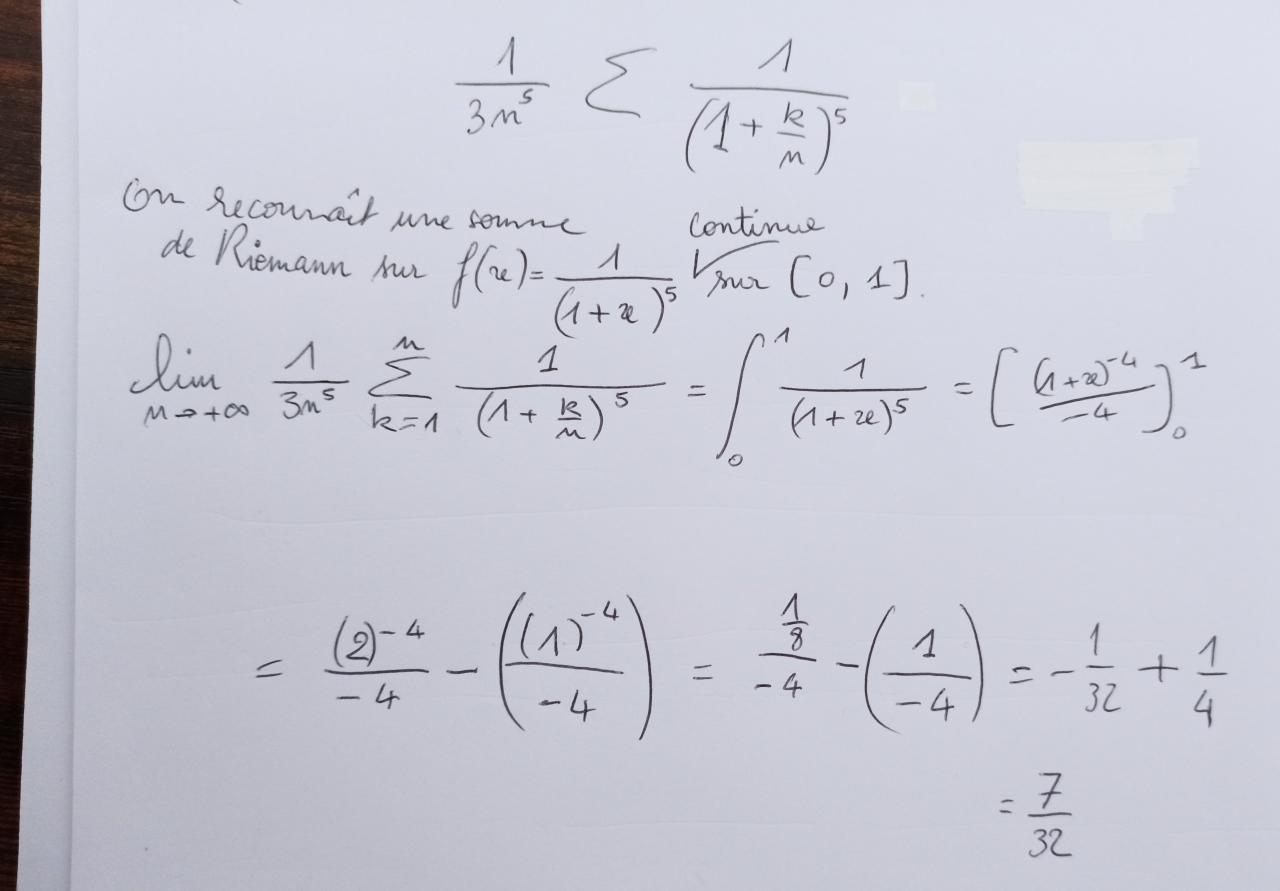 1/(3n^5) Σ 1/(1 + k/n)^5
On reconnaît une somme continue
de Riemann sur f(x) = 1/(1 + x)^5 ✓ sur [0, 1].
lim_{n→+∞} 1/(3n^5) Σ_{k=1}^{n} 1/(1 + k/n)^5 = ∫_0^1 1/(1 + x)^5 = [(1+x)^{-4}/-4]_0^1
= (2)^{-4}/-4 - ((1)^{-4}/-4) = (1/8)/-4 - (1/-4) = - 1/32 + 1/4
= 7/32